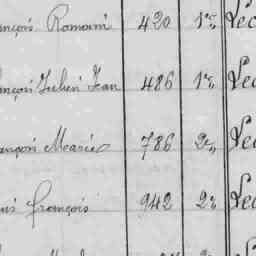 ançois Romain 420 1re Lec
ançois Julien Jean 486 1re Lec
ançois Marie 786 2e Lec
uis françois 942 2e Lec